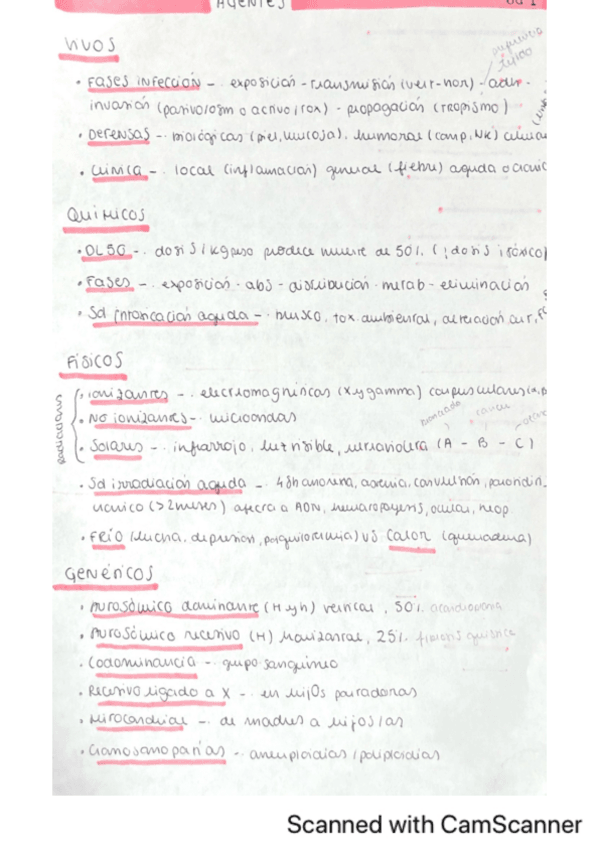 AGENTES
VIVOS
• FASES INFECCIÓN -. exposición - transmisión (vert-hor) -
invasión (pasivo/osm o activo/tox) - propagación (tropismo)
• DEFENSAS -. biológicas (piel, mucosa), humoral (comp, NK)
• CLÍNICA -. local (inflamación) general (fiebre) aguda o
QUÍMICOS
• DL50 -. dosis / kg peso produce muerte de 50%. (↓dosis ↑tóxico)
• FASES -. exposición - abs - distribución - metab - eliminación
• Sd intoxicación aguda -. brusco, tox. ambiental, alteración cut,
FÍSICOS
Radiaciones
• ionizantes -. electromagnéticas (X y gamma) corpusculares
• NO ionizantes -. microondas
• Solares -. infrarrojo, luz visible, ultravioleta (A - B - C)
bronceado cáncer
• Sd irradiación aguda -. 48h anorexia, astenia, convulsión,
crónico (>2meses) afecta a ADN, hematopoyesis, ocular, neop
• FRÍO (lucha, depresión, ) vs CALOR (quemadura)
GENÉTICOS
• Autosómico dominante (H y h) vertical, 50%. acondroplasia
• Autosómico recesivo (H) horizontal, 25%. fibrosis quística
• Codominancia -. grupo sanguíneo
• Recesivo ligado a X -. en hijos portadoras
• Mitocondrial -. de madres a hijos/as
• Cromosomopatías -. aneuploidias / poliploidias
Scanned with CamScanner